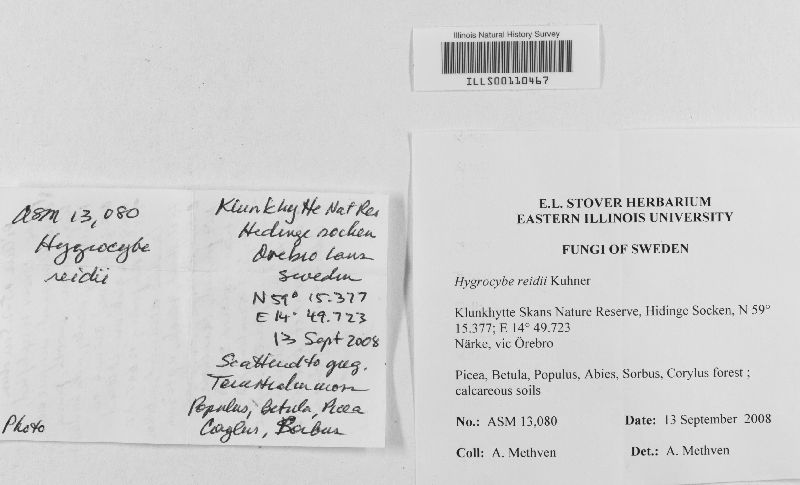 Illinois Natural History Survey
ILLS00110467
ASM 13,080
Hygrocybe
reidii
Photo
Klunkhytte Nat Res
Hidinge socken
Örebro Lans
Sweden
N 59° 15.377
E 14° 49.723
13 Sept 2008
Scattered to greg.
Populus, Betula, Picea
Corylus, Sorbus
E.L. STOVER HERBARIUM
EASTERN ILLINOIS UNIVERSITY
FUNGI OF SWEDEN
Hygrocybe reidii Kuhner
Klunkhytte Skans Nature Reserve, Hidinge Socken, N 59°
15.377; E 14° 49.723
Närke, vic Örebro
Picea, Betula, Populus, Abies, Sorbus, Corylus forest ;
calcareous soils
No.: ASM 13,080 Date: 13 September 2008
Coll: A. Methven Det.: A. Methven